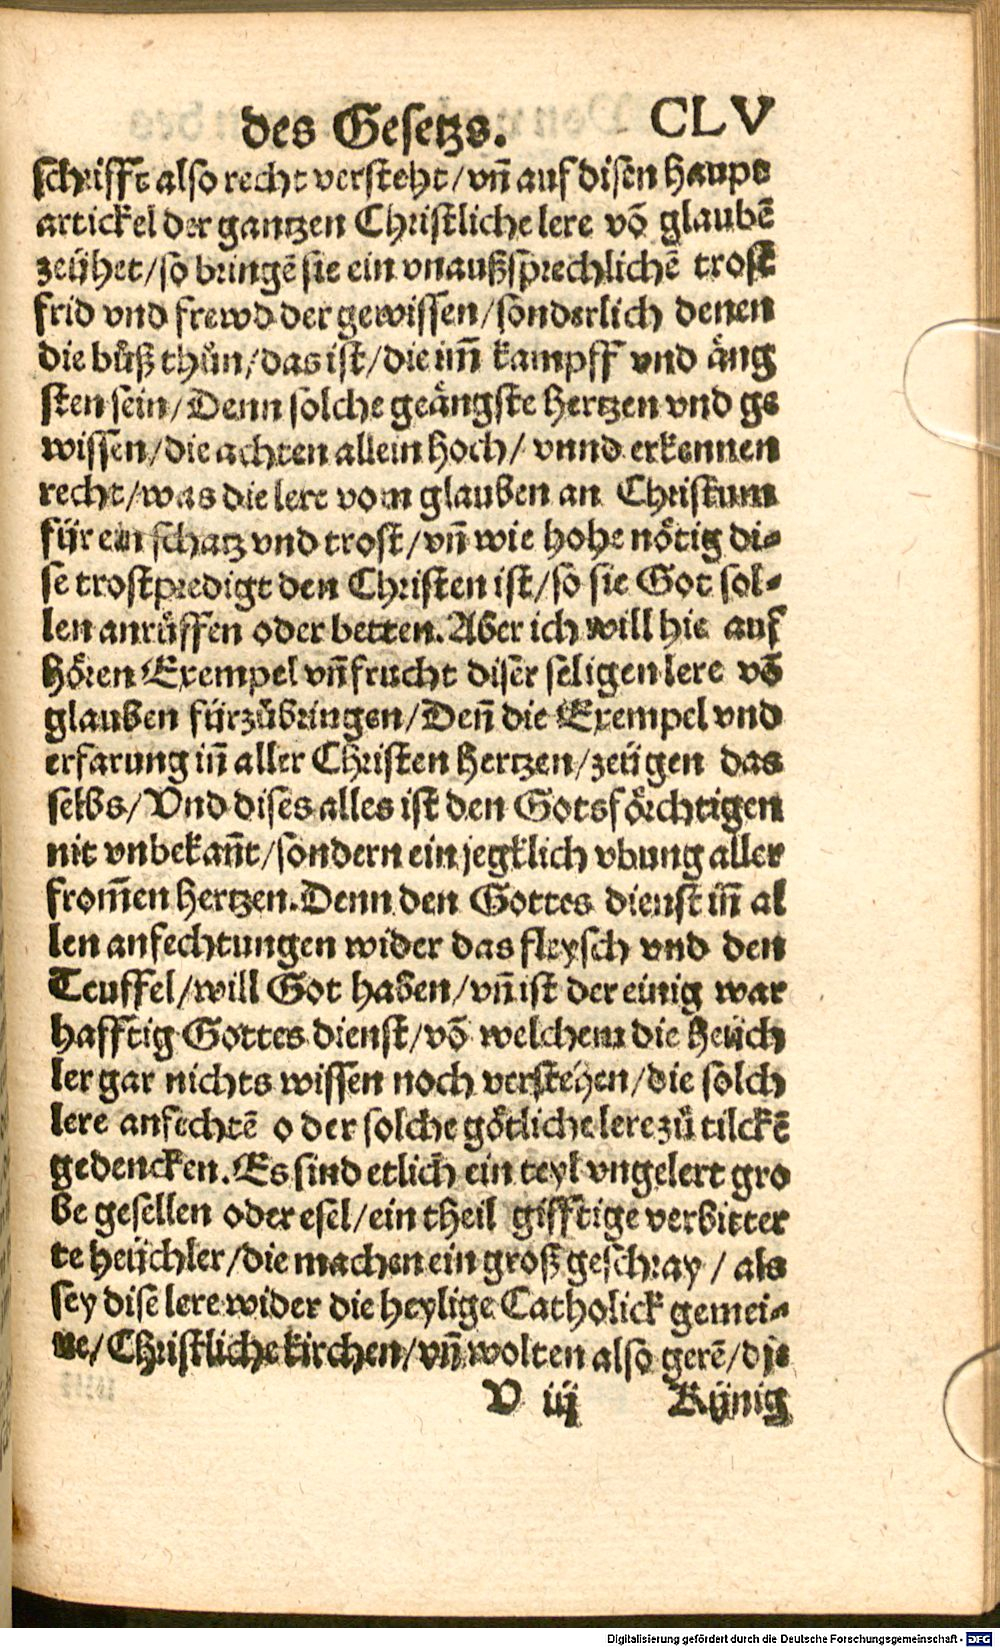 des Gesetzs. CLV
schrifft also recht versteht/vn̄ auf disen haupt
artickel der gantzen Christliche lere võ glaubẽ
zeühet/so bringẽ sie ein vnaußsprechlichẽ trost
frid vnd frewd der gewissen/sonderlich denen
die bůß thůn/das ist/die im̄ kampff vnd äng
sten sein/Denn solche geängste hertzen vnd ge
wissen/die achten allein hoch/ vnnd erkennen
recht/was die lere vom glauben an Christum
für ein schatz vnd trost/vn̄ wie hohe nötig di-
se trostpredigt den Christen ist/so sie Got sol-
len anrůffen oder betten. Aber ich will hie auf
hören Exempel vn̄ frucht diser seligen lere võ
glauben fürzůbringen/Den̄ die Exempel vnd
erfarung in̄ aller Christen hertzen/zeügen das
selbs/Vnd dises alles ist den Gotsförchtigen
nit vnbekan̄t/sondern ein jegklich vbung aller
from̄en hertzen. Denn den Gottes dienst in̄ al
len anfechtungen wider das fleysch vnd den
Teuffel/will Got haben/vn̄ ist der einig war
hafftig Gottes dienst/võ welchem die heüch
ler gar nichts wissen noch verstehen/die solch
lere anfechtẽ oder solche götliche lere zů tilckẽ
gedencken. Es sind etlich ein teyl vngelert gro
be gesellen oder esel/ein theil gifftige verbitter
te heüchler/die machen ein groß geschray/ als
sey dise lere wider die heylige Catholick gemei-
ne/Christliche kirchen/vn̄ wolten also gerẽ/die
V iij Künig
Digitalisierung gefördert durch die Deutsche Forschungsgemeinschaft - DFG